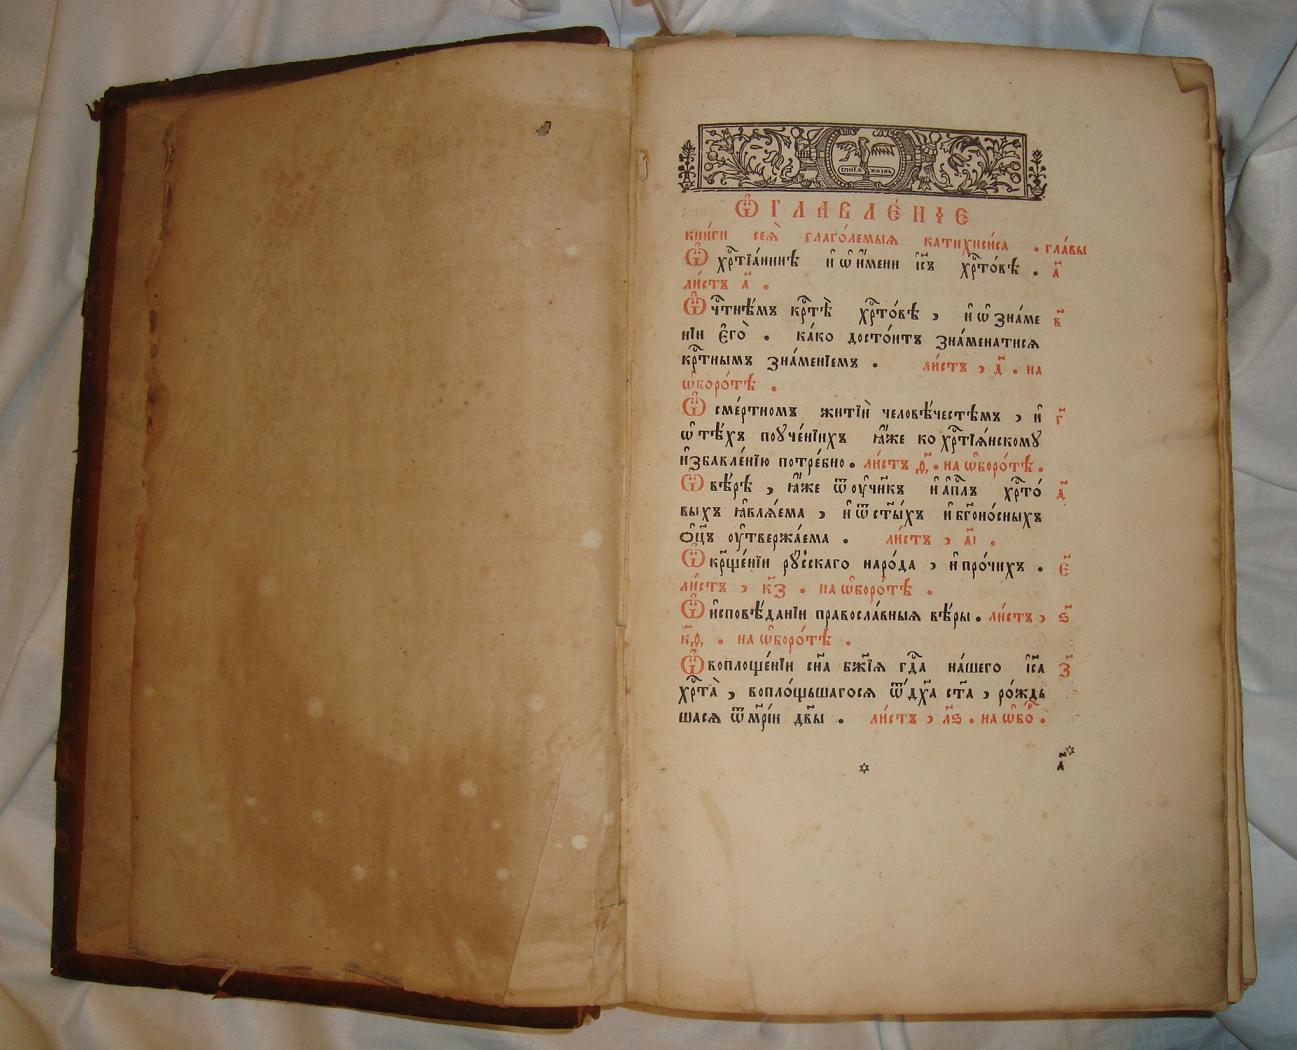 Ѡ҆ГЛАВЛЕ́НЇЕ
кни́ги сеѧ̀ глаго́лемыѧ катихиси́са . гла́вы
Ѡ҆ хрⷭ҇тїа́нинѣ и҆ ѡ҆ и҆́мени і҆с҃ъ хрⷭ҇то́вѣ . а҃
ли́стъ а҃ .
Ѡ҆ чⷭ҇тнѣ́мъ крⷭ҇тѣ̀ хрⷭ҇то́вѣ , и҆ ѡ҆ зна́ме в҃
нїи є҆гѡ̀ . ка́ко досто́итъ зна́менатисѧ
крⷭ҇тнымъ зна́менїемъ . ли́стъ , д҃ . на
ѡ҆боро́тѣ .
Ѡ҆ сме́ртномъ житїѝ человѣ́честѣмъ , и҆ г҃
ѡ҆ тѣ́хъ поуче́нїихъ ꙗ҆́же ко хрⷭ҇тїѧ́нскому
и҆збавле́нїю потре́бно . ли́стъ ѳ҃ . на ѡ҆боро́тѣ .
Ѡ҆ вѣ́рѣ , ꙗ҆́же ѿ ᲂу҆чн҃къ и҆ а҆пⷭ҇лъ хрⷭ҇то́ д҃
выхъ ꙗ҆влѧ́ема , и҆ ѿ ст҃ы́хъ и҆ бг҃оно́сныхъ
ѻ҆ц҃ъ ᲂу҆твержа́ема . ли́стъ , а҃і .
Ѡ҆ крⷭ҇ще́нїи рꙋ́сскаго наро́да , и҆ про́чихъ . є҃
ли́стъ , к҃з . на ѡ҆боро́тѣ .
Ѡ҆ и҆сповѣ́данїи правосла́вныѧ вѣ́ры . ли́стъ , ѕ҃
к҃ѳ , . на ѡ҆боро́тѣ .
Ѡ҆ воплоще́нїи сн҃а бж҃їѧ гдⷭ҇а на́шего і҆с҃а з҃
хрⷭ҇та̀ , вопло́щьшагосѧ ѿ дх҃а ст҃а , ро́ждь
шасѧ ѿ мр҃їи дв҃ы . ли́стъ , л҃ѕ . на ѡ҆бо́ .
а҃